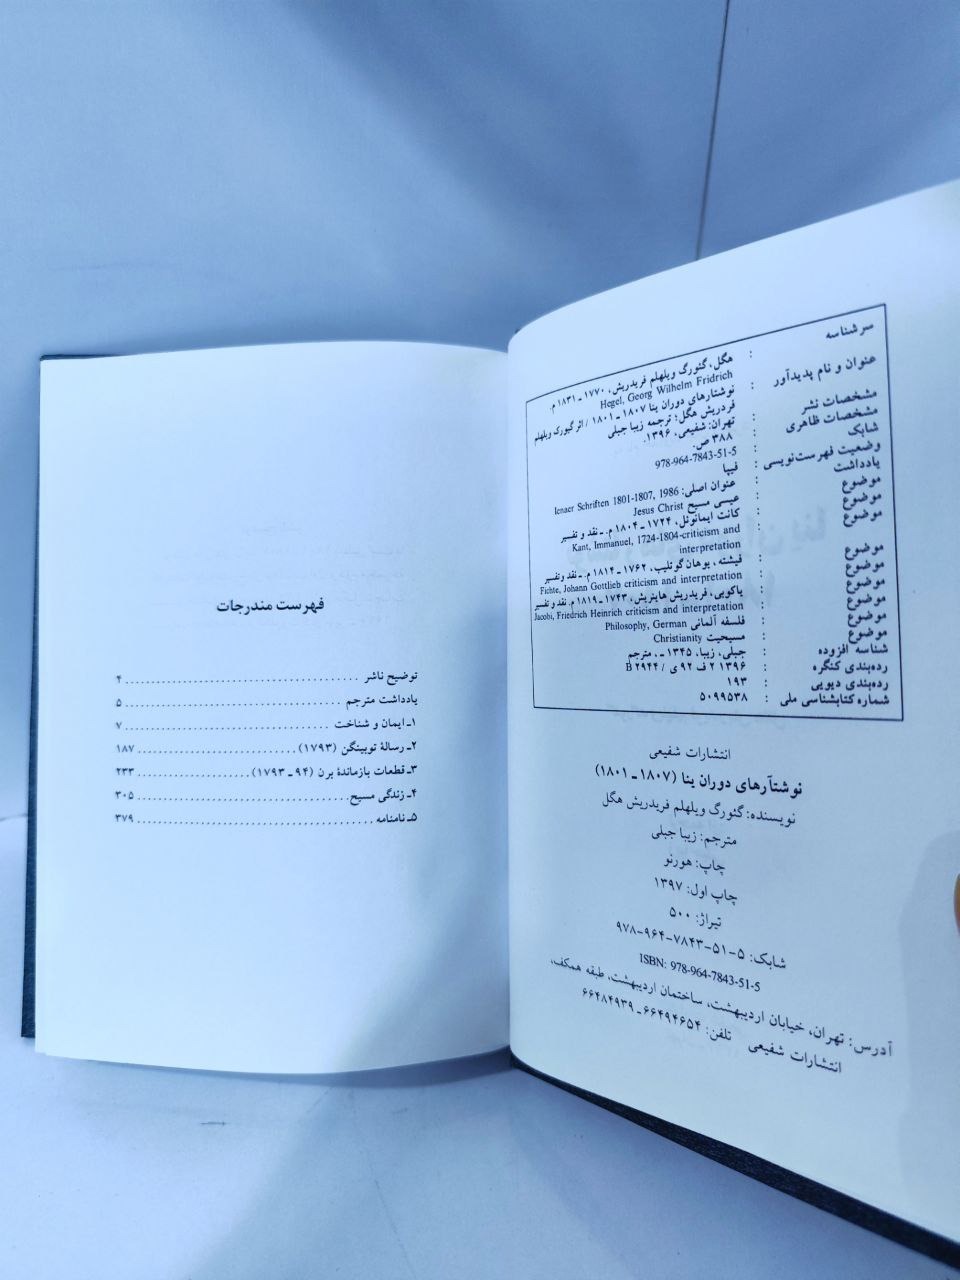 سرشناسه : هگل، گئورگ ویلهلم فریدریش، ۱۷۷۰ ـ ۱۸۳۱ م.
Hegel, Georg Wilhelm Fridrich
عنوان و نام پدیدآور : نوشتارهای دوران ینا ۱۸۰۷ ـ ۱۸۰۱ / اثر گیورک ویلهلم
فردریش هگل؛ ترجمه زیبا جبلی
مشخصات نشر : تهران: شفیعی، ۱۳۹۶.
مشخصات ظاهری : ۳۸۸ ص.
شابک : 978-964-7843-51-5
وضعیت فهرست‌نویسی : فیپا
یادداشت : عنوان اصلی: Ienaer Schriften 1801-1807, 1986
موضوع : عیسی مسیح Jesus Christ
موضوع : کانت ایمانوئل، ۱۷۲۴ ـ ۱۸۰۴ م. ـ نقد و تفسیر
موضوع : Kant, Immanuel, 1724-1804-criticism and
interpretation
موضوع : فیشته، یوهان گوتلیب، ۱۷۶۲ ـ ۱۸۱۴ م. ـ نقد وتفسیر
موضوع : Fichte, Johann Gottlieb criticism and interpretation
موضوع : یاکوبی، فریدریش هاینریش، ۱۷۴۳ ـ ۱۸۱۹ م. نقد و تفسیر
موضوع : Jacobi, Friedrich Heinrich criticism and interpretation
موضوع : فلسفه آلمانی Philosophy, German
موضوع : مسیحیت Christianity
شناسه افزوده : جبلی، زیبا، ۱۳۴۵ ـ ، مترجم
رده‌بندی کنگره : ۱۳۹۶ ۲ ف ۹۲ ی / B ۲۹۴۴
رده‌بندی دیویی : ۱۹۳
شماره کتابشناسی ملی : ۵۰۹۹۵۳۸
انتشارات شفیعی
نوشتآرهای دوران ینا (۱۸۰۷ ـ ۱۸۰۱)
نویسنده: گئورگ ویلهلم فریدریش هگل
مترجم: زیبا جبلی
چاپ: هورنو
چاپ اول: ۱۳۹۷
تیراژ: ۵۰۰
شابک: ۵-۵۱-۷۸۴۳-۹۶۴-۹۷۸
ISBN: 978-964-7843-51-5
آدرس: تهران، خیابان اردیبهشت، ساختمان اردیبهشت، طبقه همکف،
انتشارات شفیعی تلفن: ۶۶۴۹۴۶۵۴ـ ۶۶۴۸۴۹۳۹
فهرست مندرجات
توضیح ناشر ........ ۴
یادداشت مترجم ........ ۵
۱ـ ایمان و شناخت ........ ۷
۲ـ رسالۀ توبینگن (۱۷۹۳) ........ ۱۸۷
۳ـ قطعات بازماندۀ برن (۹۴ ـ ۱۷۹۳) ........ ۲۳۳
۴ـ زندگی مسیح ........ ۳۰۵
۵ـ نامنامه ........ ۳۷۹